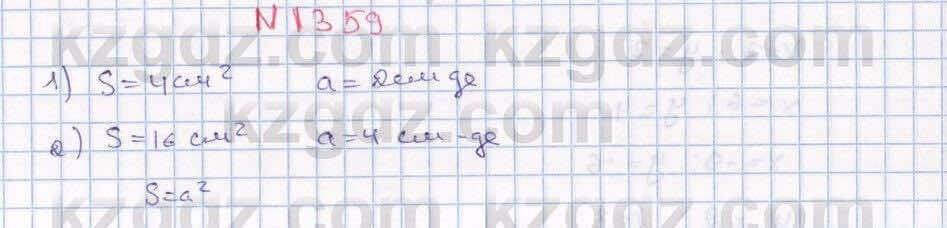 N 1359
1) S=4см² a=2см де
2) S=16 см² a=4 см-де
S=a²
kzgdz.com kzgdz.com
kzgdz.com
kzgdz.com kzgdz.com